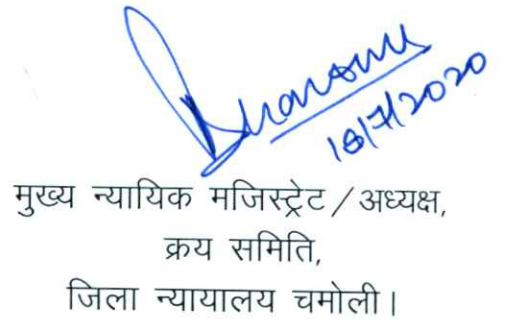 18/7/2020
मुख्य न्यायिक मजिस्ट्रेट/अध्यक्ष,
क्रय समिति,
जिला न्यायालय चमोली।